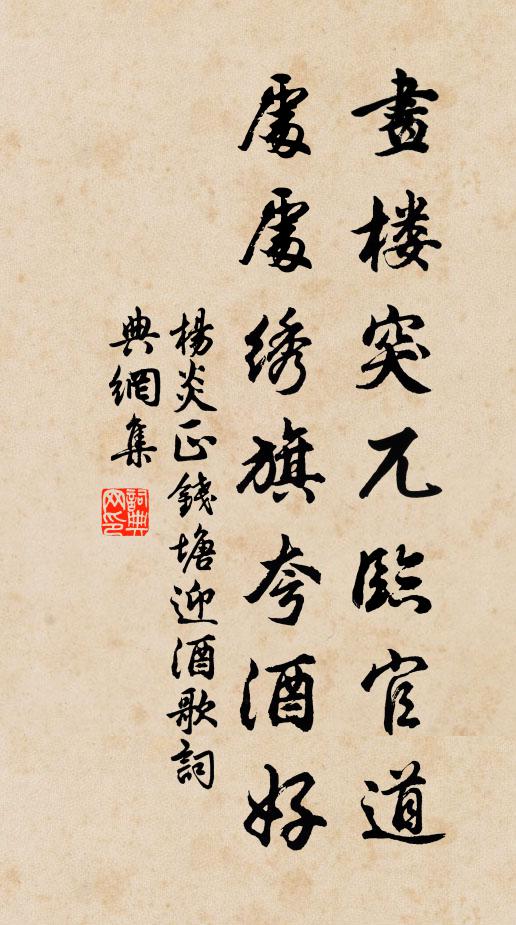 畫楼突兀臨官道
處處绣旗夸酒好
楊炎正錢塘迎酒歌詞
典網集
詞典網印